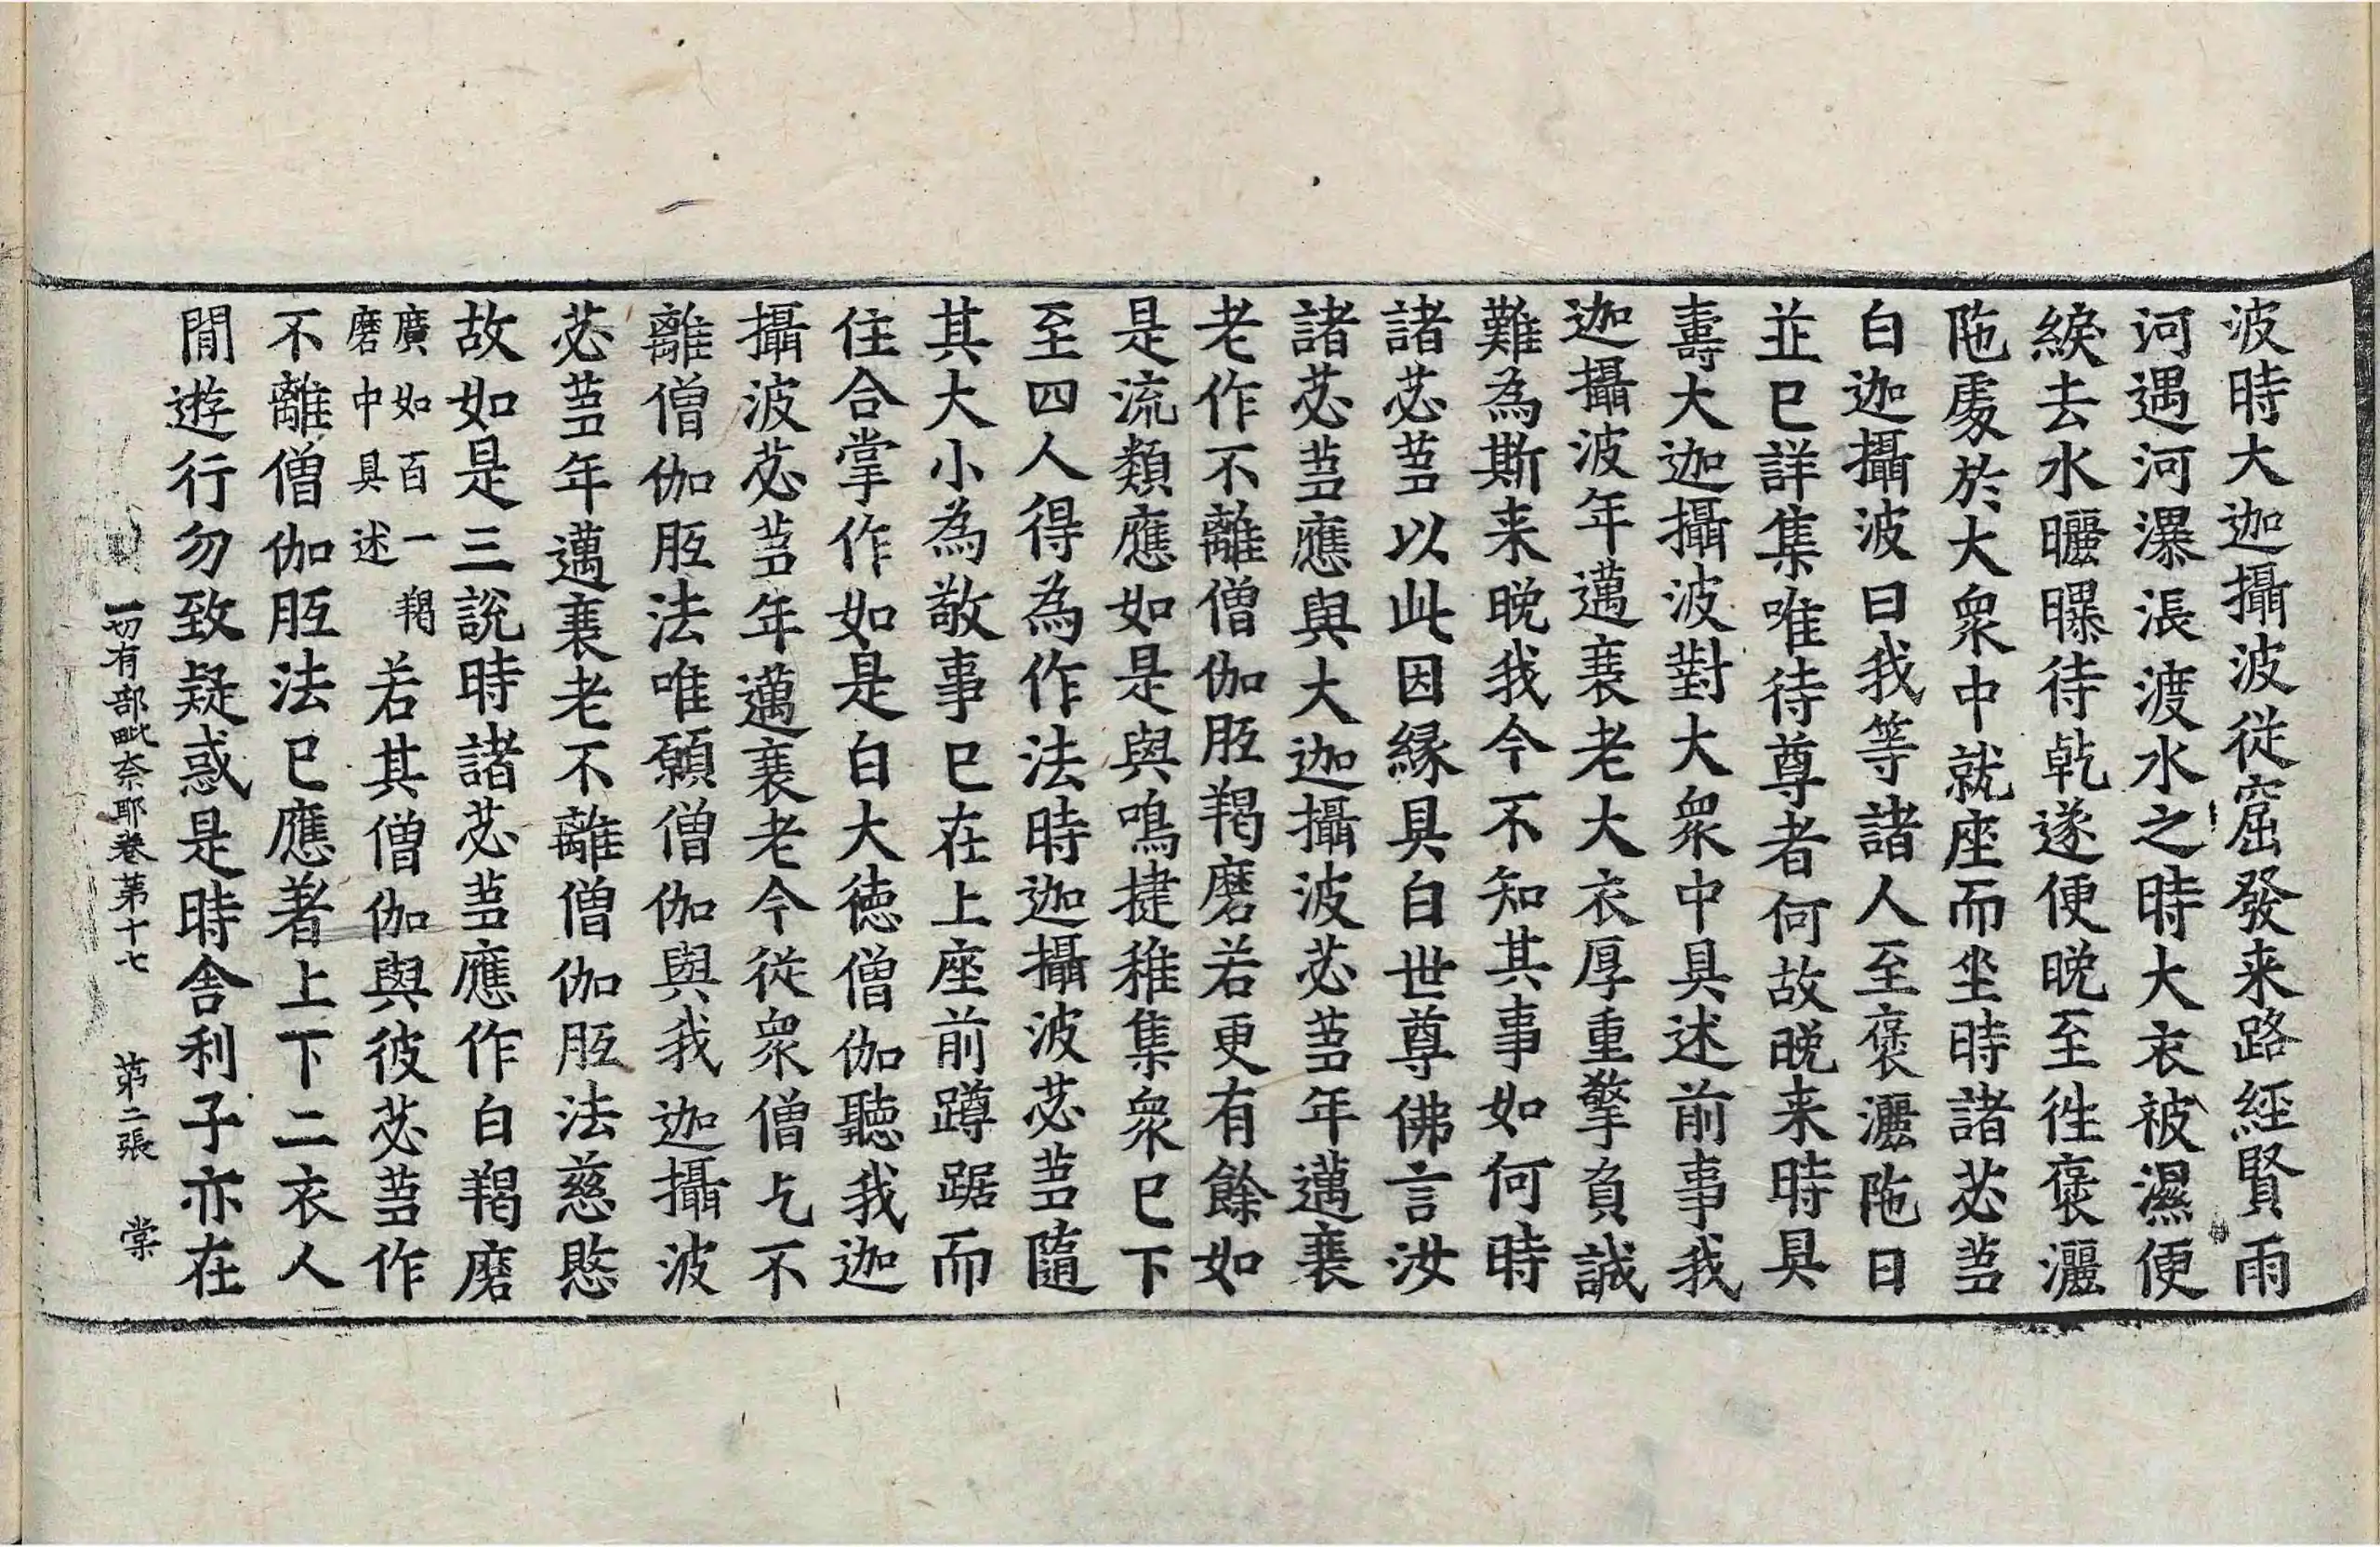 波時大迦攝波從窟發来路經賢雨
河遇河瀑漲渡水之時大衣被濕便
綟去水曬曝待乾遂便晚至徃褒灑
陁處於大衆中就座而坐時諸苾芻
白迦攝波曰我等諸人至褒灑陁日
並已詳集唯待尊者何故晚来時具
壽大迦攝波對大衆中具述前事我
迦攝波年邁衰老大衣厚重擎負誠
難為斯来晚我今不知其事如何時
諸苾芻以此因緣具白世尊佛言汝
諸苾芻應與大迦攝波苾芻年邁衰
老作不離僧伽胝羯磨若更有餘如
是流類應如是與鳴揵稚集衆已下
至四人得為作法時迦攝波苾芻隨
其大小為敬事已在上座前蹲踞而
住合掌作如是白大徳僧伽聽我迦
攝波苾芻年邁衰老今從衆僧乞不
離僧伽胝法唯願僧伽與我迦攝波
苾芻年邁衰老不離僧伽胝法慈愍
故如是三說時諸苾芻應作白羯磨
廣如百一羯
磨中具述
若其僧伽與彼苾芻作
不離僧伽胝法已應著上下二衣人
閒遊行勿致疑惑是時舍利子亦在
一切有部毗奈耶卷苐十七 苐二張 棠